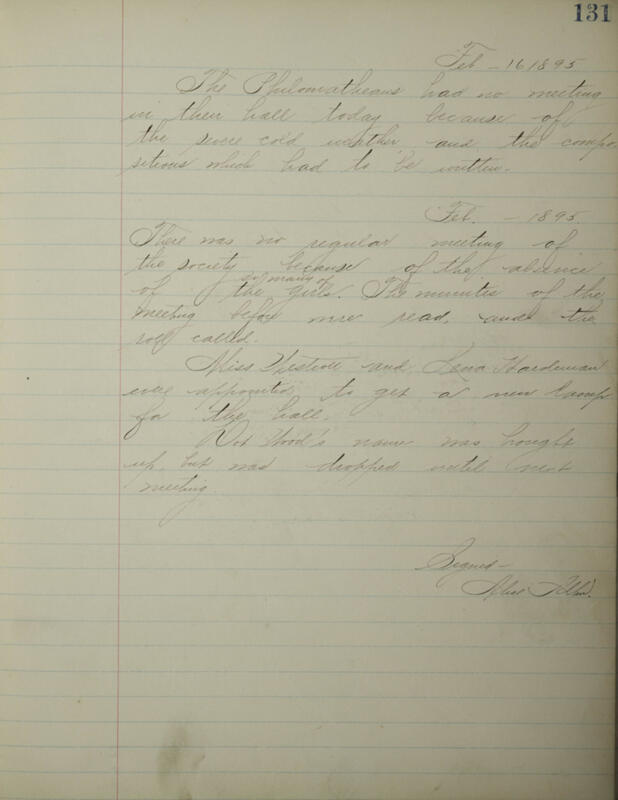 131
Feb - 16 1895
The Philomatheans had no meeting
in their hall today because of
the severe cold weather and the compo-
sitions which had to be written.
Feb. - 1895
There was no regular meeting of
the society because of the absence
so many of
of the girls. The minutes of the
meeting before were read, and the
roll called.
Miss and Lena Hardeman
were appointed to get a new Lamp
for the hall.
Wood's name was brought
up, but was dropped until next
meeting.
Signed -
Alice